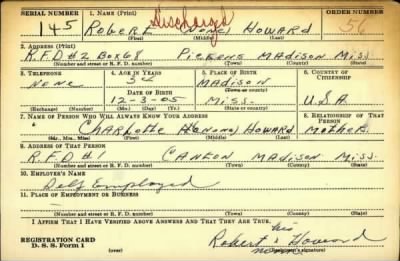 SERIAL NUMBER 1. NAME (Print) ORDER NUMBER
Discharged
145 Robert (None) Howard 56
(First) (Middle) (Last)
2. ADDRESS (Print)
R.F.D #2 Box 68 Pickens Madison Miss.
(Number and street or R. F. D. number) (Town) (County) (State)
3. TELEPHONE 4. AGE IN YEARS 5. PLACE OF BIRTH 6. COUNTRY OF CITIZENSHIP
None 34 Madison
DATE OF BIRTH (Town or county)
12-3-05 Miss. U.S.A
(Exchange) (Number) (Mo.) (Day) (Yr.) (State or country)
7. NAME OF PERSON WHO WILL ALWAYS KNOW YOUR ADDRESS 8. RELATIONSHIP OF THAT PERSON
Charlotte (None) Howard Mother
(Mr., Mrs., Miss) (First) (Middle) (Last)
9. ADDRESS OF THAT PERSON
R.F.D #1 Canton Madison Miss.
(Number and street or R. F. D. number) (Town) (County) (State)
10. EMPLOYER'S NAME
Self Employed
11. PLACE OF EMPLOYMENT OR BUSINESS
(Number and street or R. F. D. number) (Town) (County) (State)
I AFFIRM THAT I HAVE VERIFIED ABOVE ANSWERS AND THAT THEY ARE TRUE.
his
REGISTRATION CARD Robert x Howard
D. S. S. Form 1